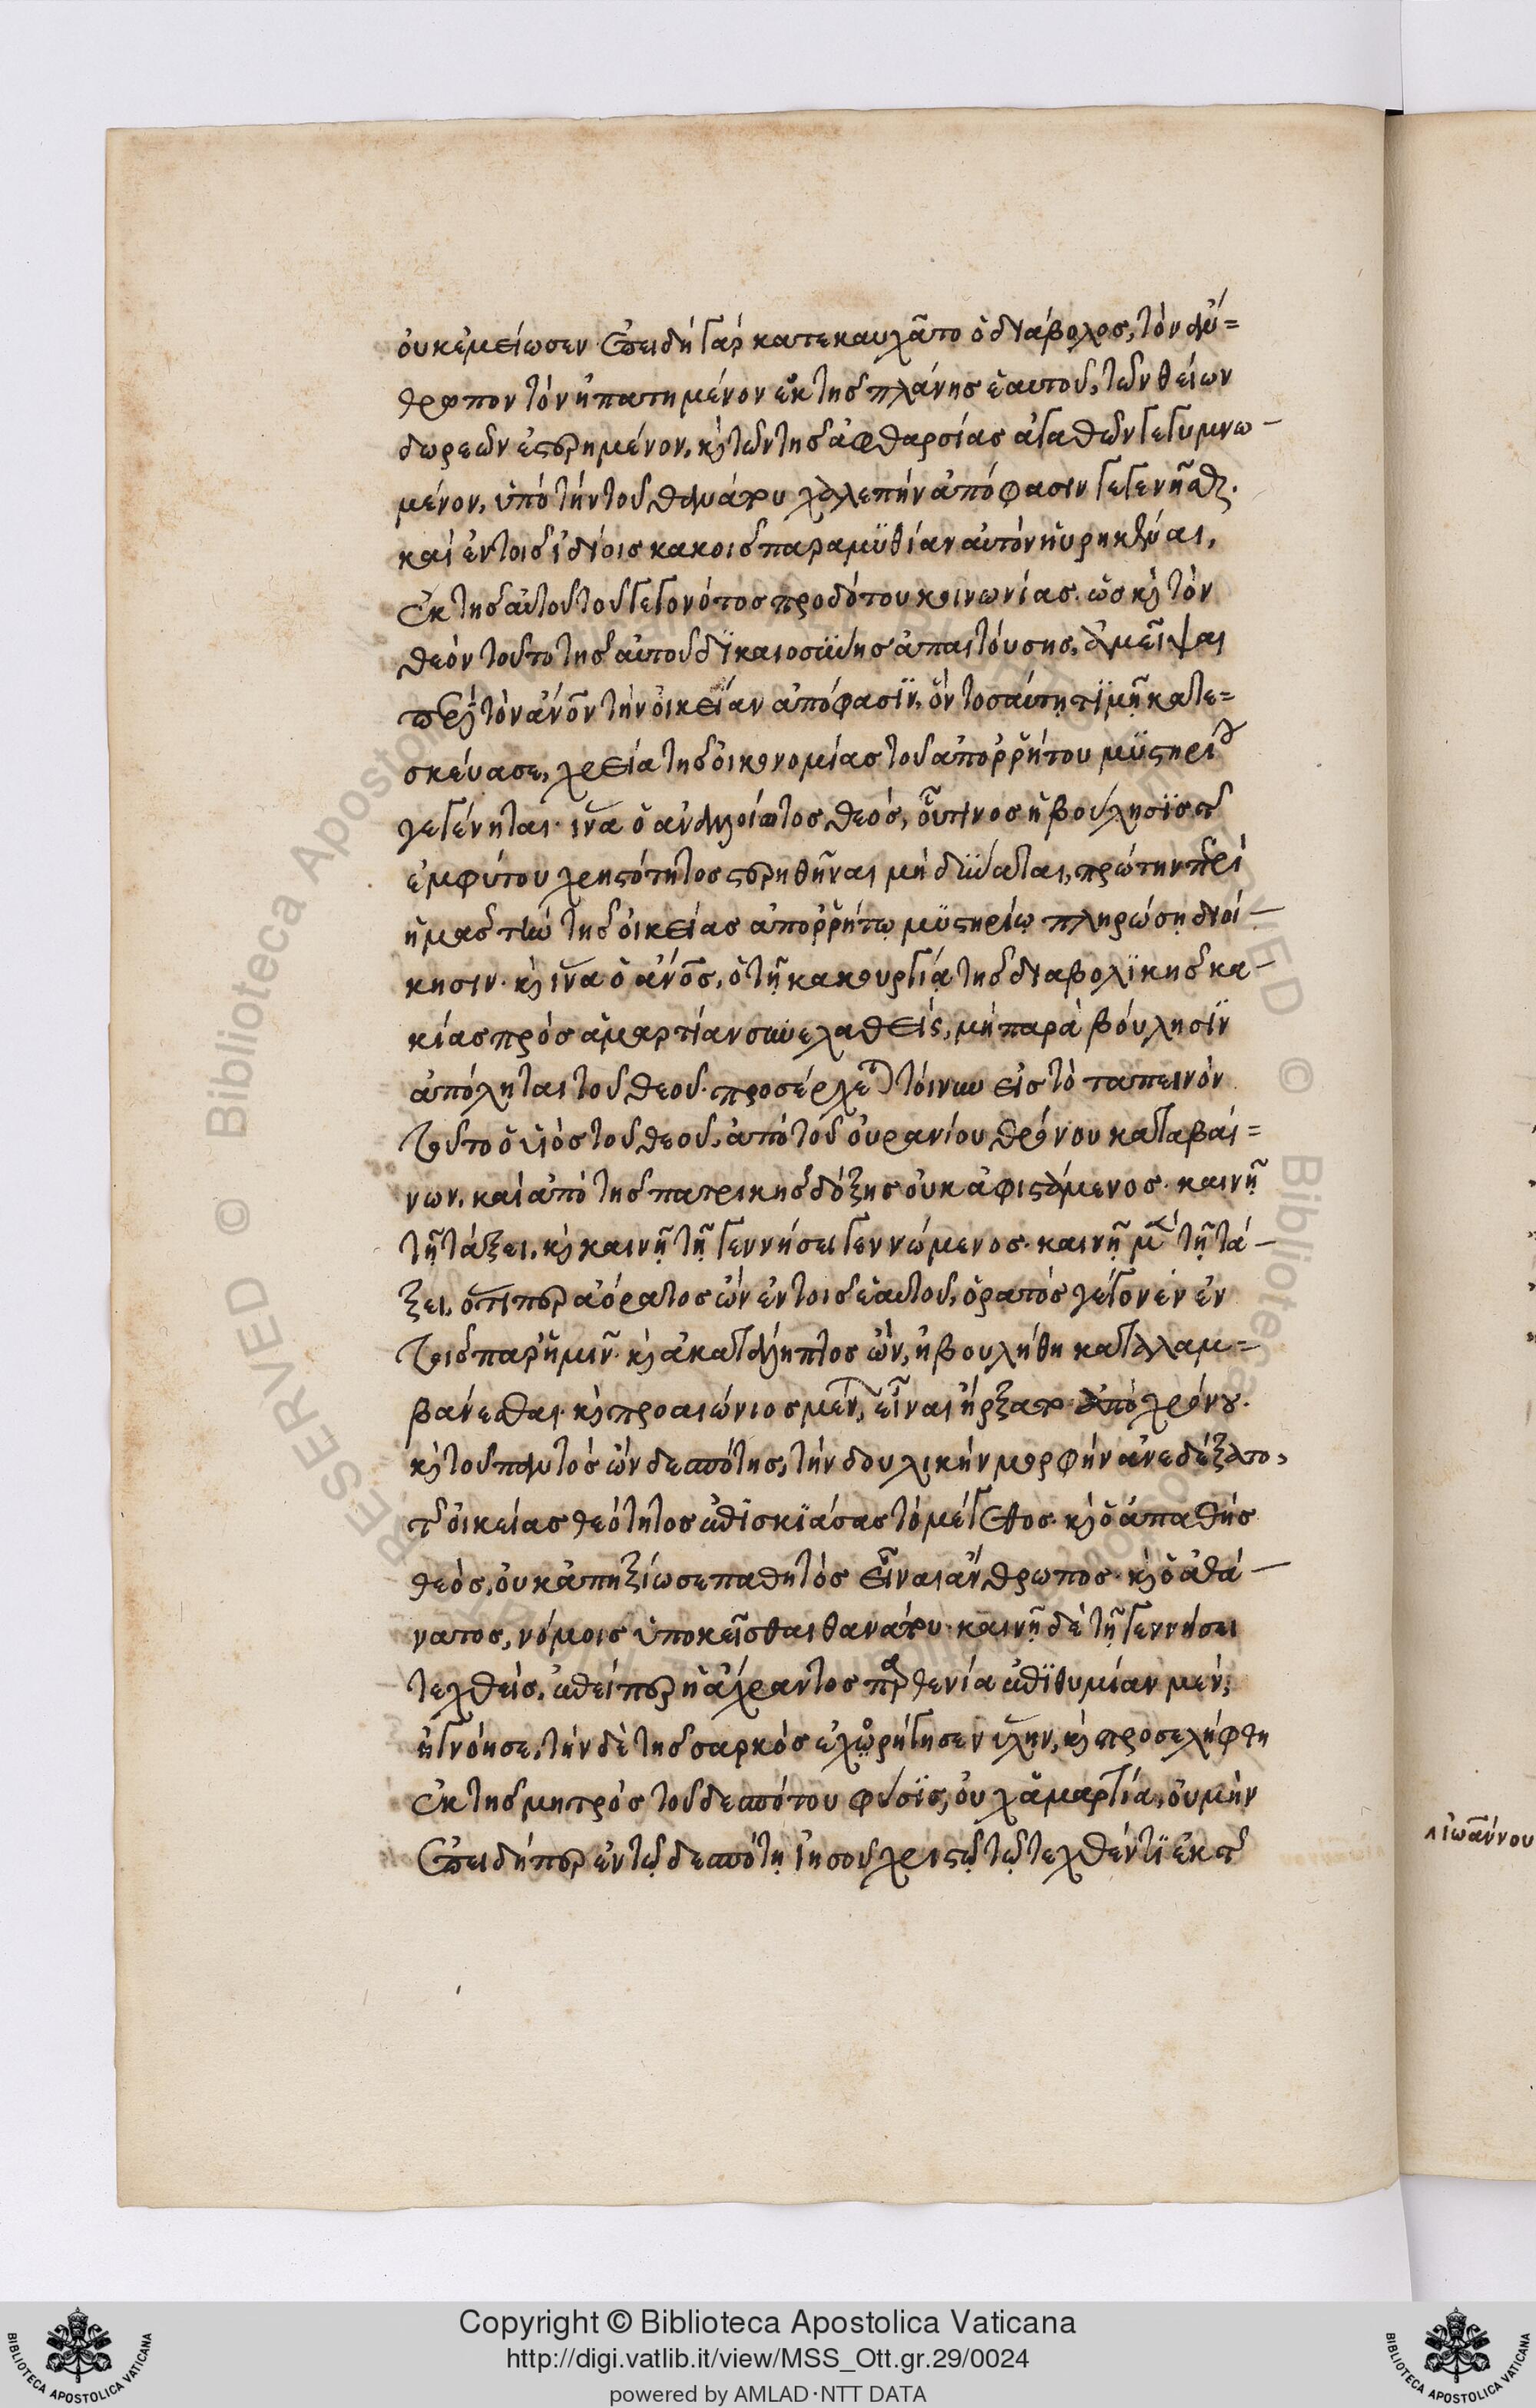 οὐκ ἐμείωσεν· Ἐπειδὴ γὰρ κατεκαυχᾶτο ὁ διάβολος, τὸν ἄν=
θρωπον τὸν ἠπατημένον ἐκ τῆς πλάνης ἑαυτοῦ, τῶν θείων
δωρεῶν ἐστερημένον, κ̀ τῶν τῆς ἀφθαρσίας ἀγαθῶν γεγυμνω–
μένον, ὑπὸ τὴν τοῦ θανάτου χαλεπὴν ἀπόφασιν γεγενῆσθαι.
καὶ ἐν τοῖς ἰδίοις κακοῖς παραμυθίαν αὐτὸν ηὑρηκέναι,
Ἐκ τῆς αὐτοῦ τοῦ γεγονότος προδότου κοινωνίας. ὡς κ̀ τὸν
θεὸν τοῦτο τῆς αὐτοῦ δικαιοσύνης ἀπαιτούσης, ἀμεῖψαι
περὶ τὸν ἄνον τὴν οἰκείαν ἀπόφασιν, ὃν τοσαύτῃ τιμῇ κατε=
σκεύασε, χρεία τῆς οἰκονομίας τοῦ ἀπορρήτου μυστηρίου
γεγένηται· ἵνα ὁ ἀναλλοίωτος θεός, οὗτινος ἡ βούλησις τῆς
ἐμφύτου χρηστότητος στερηθῆναι μὴ δύναται, πρώτην περὶ
ἡμᾶς τὴν τῆς οἰκείας ἀπορρήτῳ μυστηρίῳ πληρώσῃ διοί–
κησιν· κ̀ ἵνα ὁ ἄνος, ὁ τῇ κακουργίᾳ τῆς διαβολικῆς κα–
κίας πρὸς ἁμαρτίαν συνελαθείς, μὴ παρὰ βούλησιν
ἀπόληται τοῦ θεοῦ. προσέρχεται τοίνυν εἰς τὸ ταπεινὸν
τοῦτο ὁ υἱὸς τοῦ θεοῦ, ἀπὸ τοῦ οὐρανίου θρόνου καταβαί=
νων, καὶ ἀπὸ τῆς πατρικῆς δόξης οὐκ ἀφιστάμενος· καινῇ
τῇ τάξει, κ̀ καινῇ τῇ γεννήσει γεννώμενος· καινῇ μὲν τῇ τά–
ξει, ὅτιπερ ἀόρατος ὢν ἐν τοῖς ἑαυτοῦ, ὁρατὸς γέγονεν ἐν
τοῖς παρ' ἡμῖν· κ̀ ἀκατάληπτος ὤν, ἠβουλήθη καταλαμ=
βάνεσθαι· κ̀ προαιώνιος μένων, εἶναι ἤρξατο ἀπὸ χρόνου.
κ̀ τοῦ παντὸς ὢν δεσπότης, τὴν δουλικὴν μορφὴν ἀνεδέξατο,
τῆς οἰκείας θεότητος ἐπισκιάσας τὸ μέγεθος· κ̀ ὁ ἀπαθὴς
θεός, οὐκ ἀπηξίωσε παθητὸς εἶναι ἄνθρωπος· κ̀ ὁ ἀθά–
νατος, νόμοις ὑποκεῖσθαι θανάτου· καινῇ δὲ τῇ γεννήσει
τεχθείς, ἐπείπερ ἡ ἄχραντος παρθενία ἐπιθυμίαν μέν,
ἠγνόησε, τὴν δὲ τῆς σαρκὸς ἐχωρήγησεν ὕλην, κ̀ προσελήφθη
Ἐκ τῆς μητρὸς τοῦ δεσπότου φύσις, οὐχ ἁμαρτία, οὐ μὴν
Ἐπειδήπερ ἐν τῷ δεσπότῃ Ἰησοῦ χριστῷ τῷ τεχθέντι ἐκ τῆς
ἰωάννου
Copyright © Biblioteca Apostolica Vaticana
http://digi.vatlib.it/view/MSS_Ott.gr.29/0024
powered by AMLAD·NTT DATA